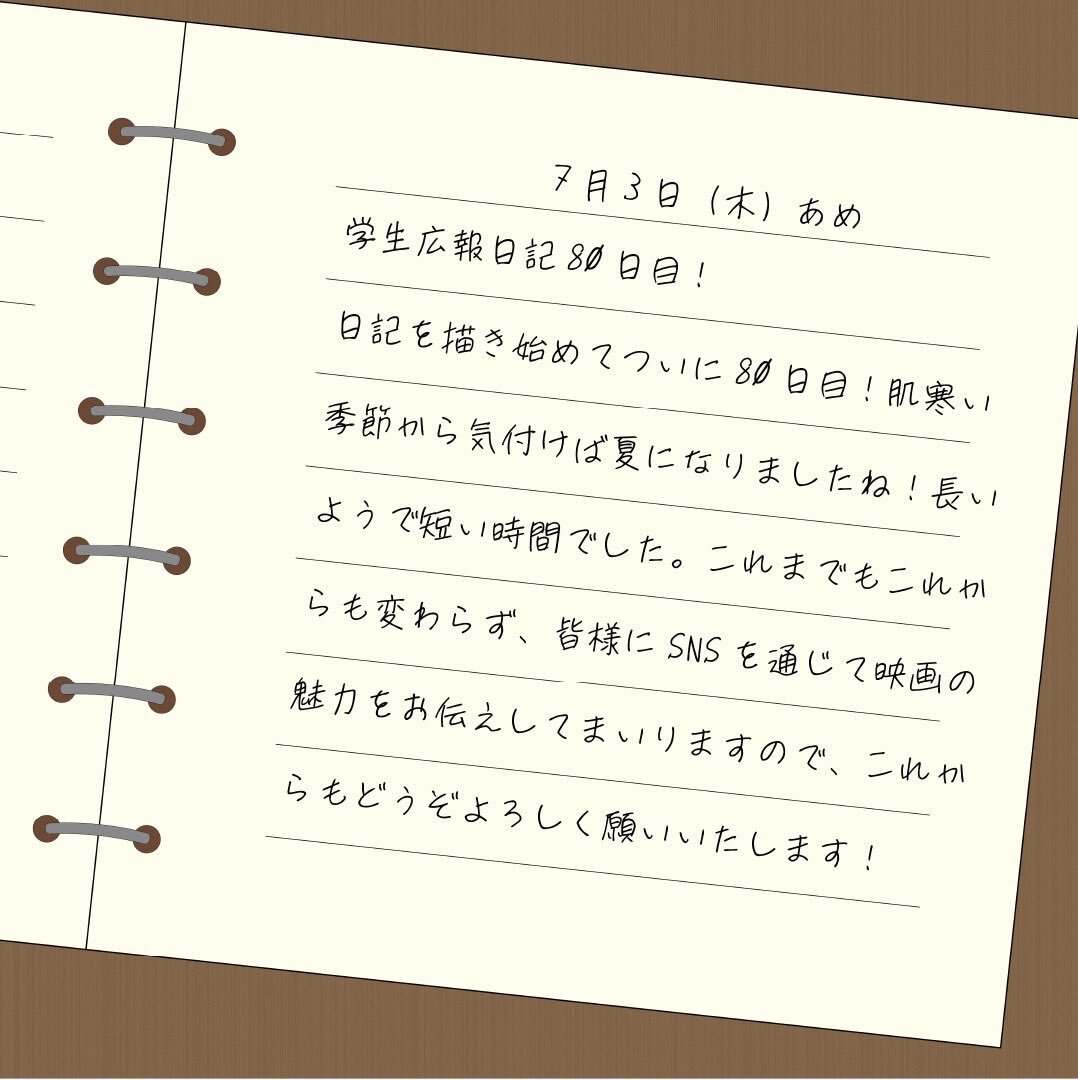 7月3日（木）あめ
学生広報日記80日目！
日記を描き始めてついに80日目！肌寒い
季節から気付けば夏になりましたね！長い
ようで短い時間でした。これまでもこれか
らも変わらず、皆様にSNSを通じて映画の
魅力をお伝えしてまいりますので、これか
らもどうぞよろしく願いいたします！